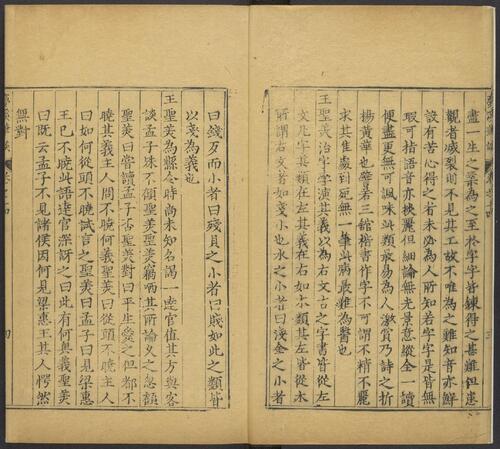 盡一生之業為之至於字字皆鍊得之甚難但患
觀者滅裂則不見其工故不唯為之難知音亦鮮
設有苦心得之者未必為人所知若字字是皆無
瑕可指語音亦掞麗但細論無光景意縱全一讀
便盡更無可諷味此類最易為人激賞乃詩之折
楊黃華也譬若三館楷書作字不可謂不精不麗
求其佳處到死無一筆此病最難為醫也
王聖美治字學演其義以為右文古之字書皆從左
文凡字其類在左其義在右如木類其左皆從木
所謂右文者如戔小也水之小者曰淺金之小者
曰錢歹而小者曰殘貝之小者曰賤如此之類皆
以戔為義也
王聖美為縣令時尚未知名謁一達官值其方與客
談孟子殊不顧聖美聖美竊哂其所論久之忽顧
聖美曰嘗讀孟子否聖美對曰平生愛之但都不
曉其義主人問不曉何義聖美曰從頭不曉主人
曰如何從頭不曉試言之聖美曰孟子曰見梁惠
王已不曉此語達官深訝之曰此有何奧義聖美
曰既云孟子不見諸侯因何見梁惠王其人愕然
無對